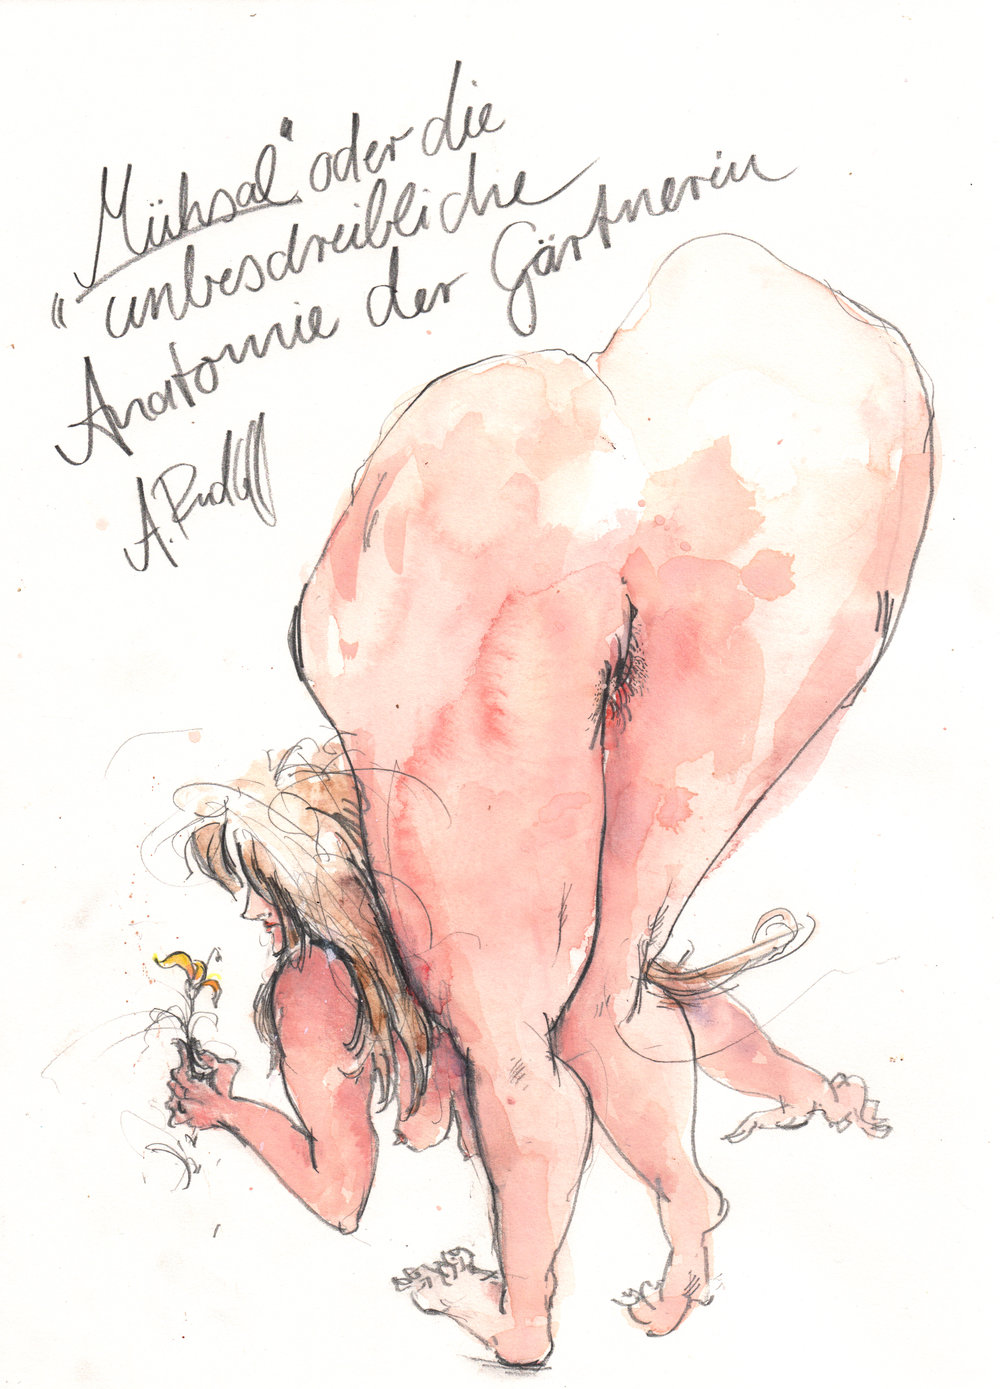 "Mühsal" oder die
"unbeschreibliche
Anatomie der Gärtnerin
A. Rudloff